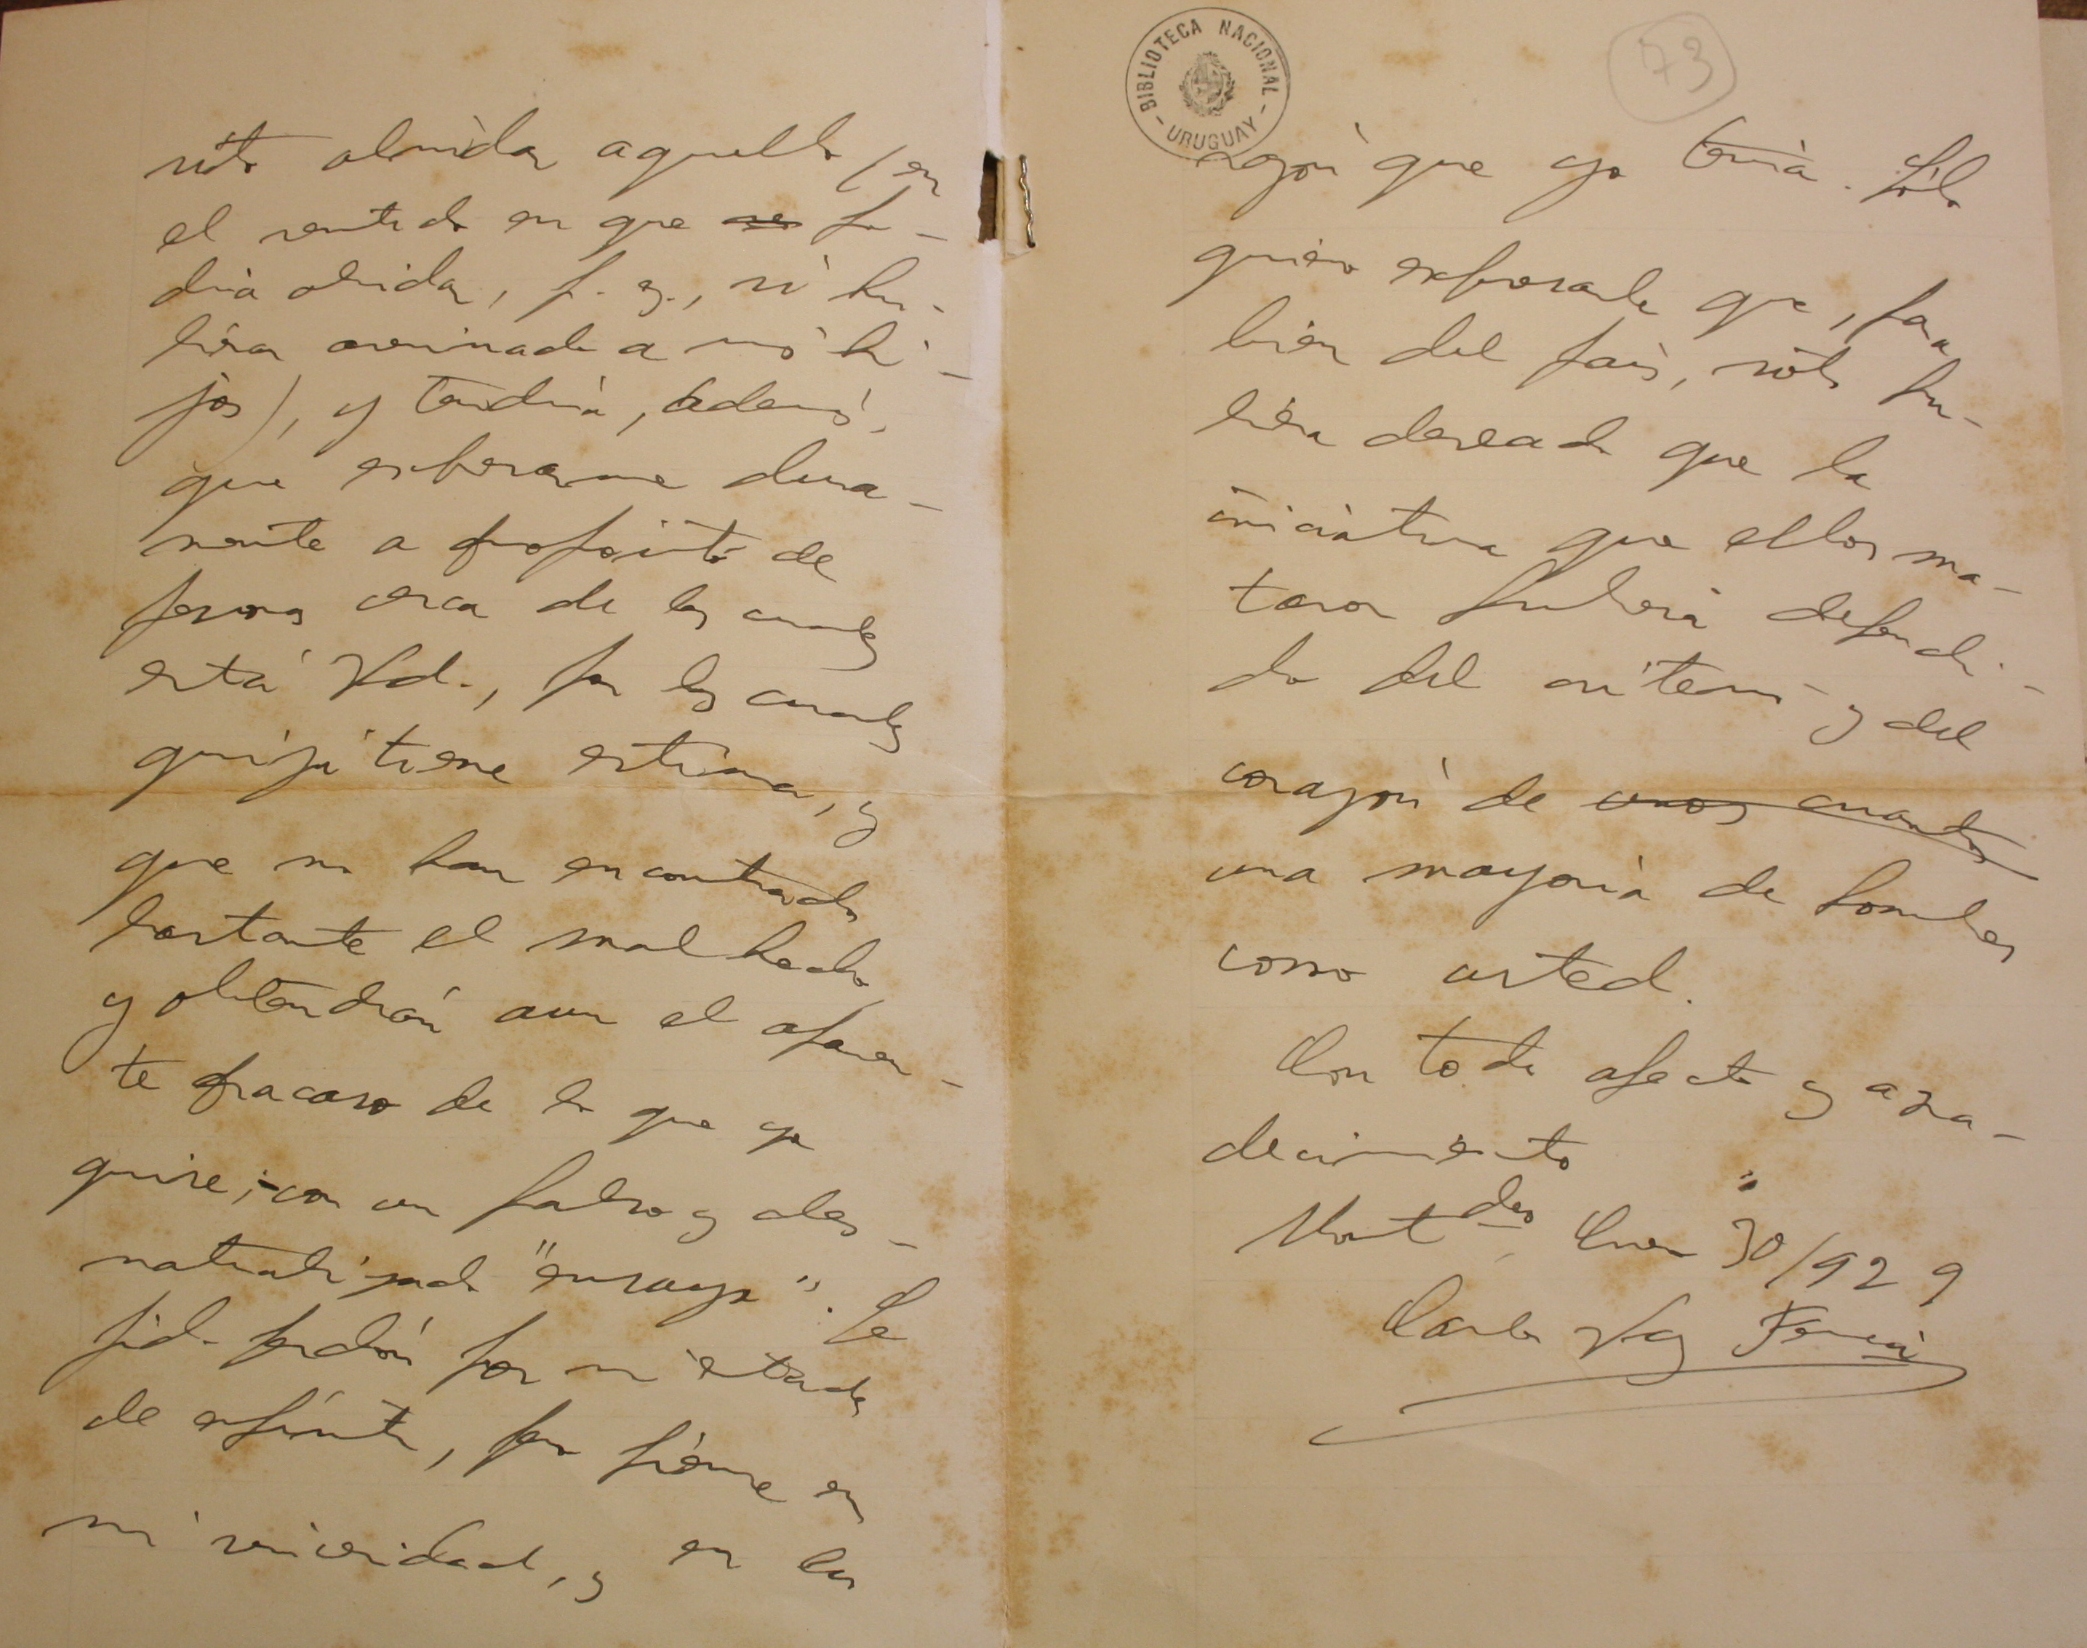 sito olvidar aquello (en
el sentido en que se po-
dría olvidar, p. ej., si hu-
bieran asesinado a mis hi-
jos), y tendría, además,
que expresarme dura-
mente a propósito de
personas cerca de las cuales
está Vd., por las cuales
quizá tiene estima, y
que no han encontrado
bastante el mal hecho
y obtendrán aun el aparen-
te fracaso de lo que yo
quise, con un falso y des-
naturalizado "ensayo". Le
pido perdón por mi estado
de espíritu, pero piense en
mi sinceridad, y en la
BIBLIOTECA NACIONAL
- URUGUAY -
73
razón que yo tenía. Sólo
quiero expresarle que, para
bien del país, sólo hu-
biera deseado que la
iniciativa que ellos ma-
taron hubiera dependi-
do del criterio y del
corazón de unos cuantos
una mayoría de hombres
como usted.
Con todo afecto y agra-
decimiento
Montdeo, Enero 30/929
Carlos Vaz Ferreira